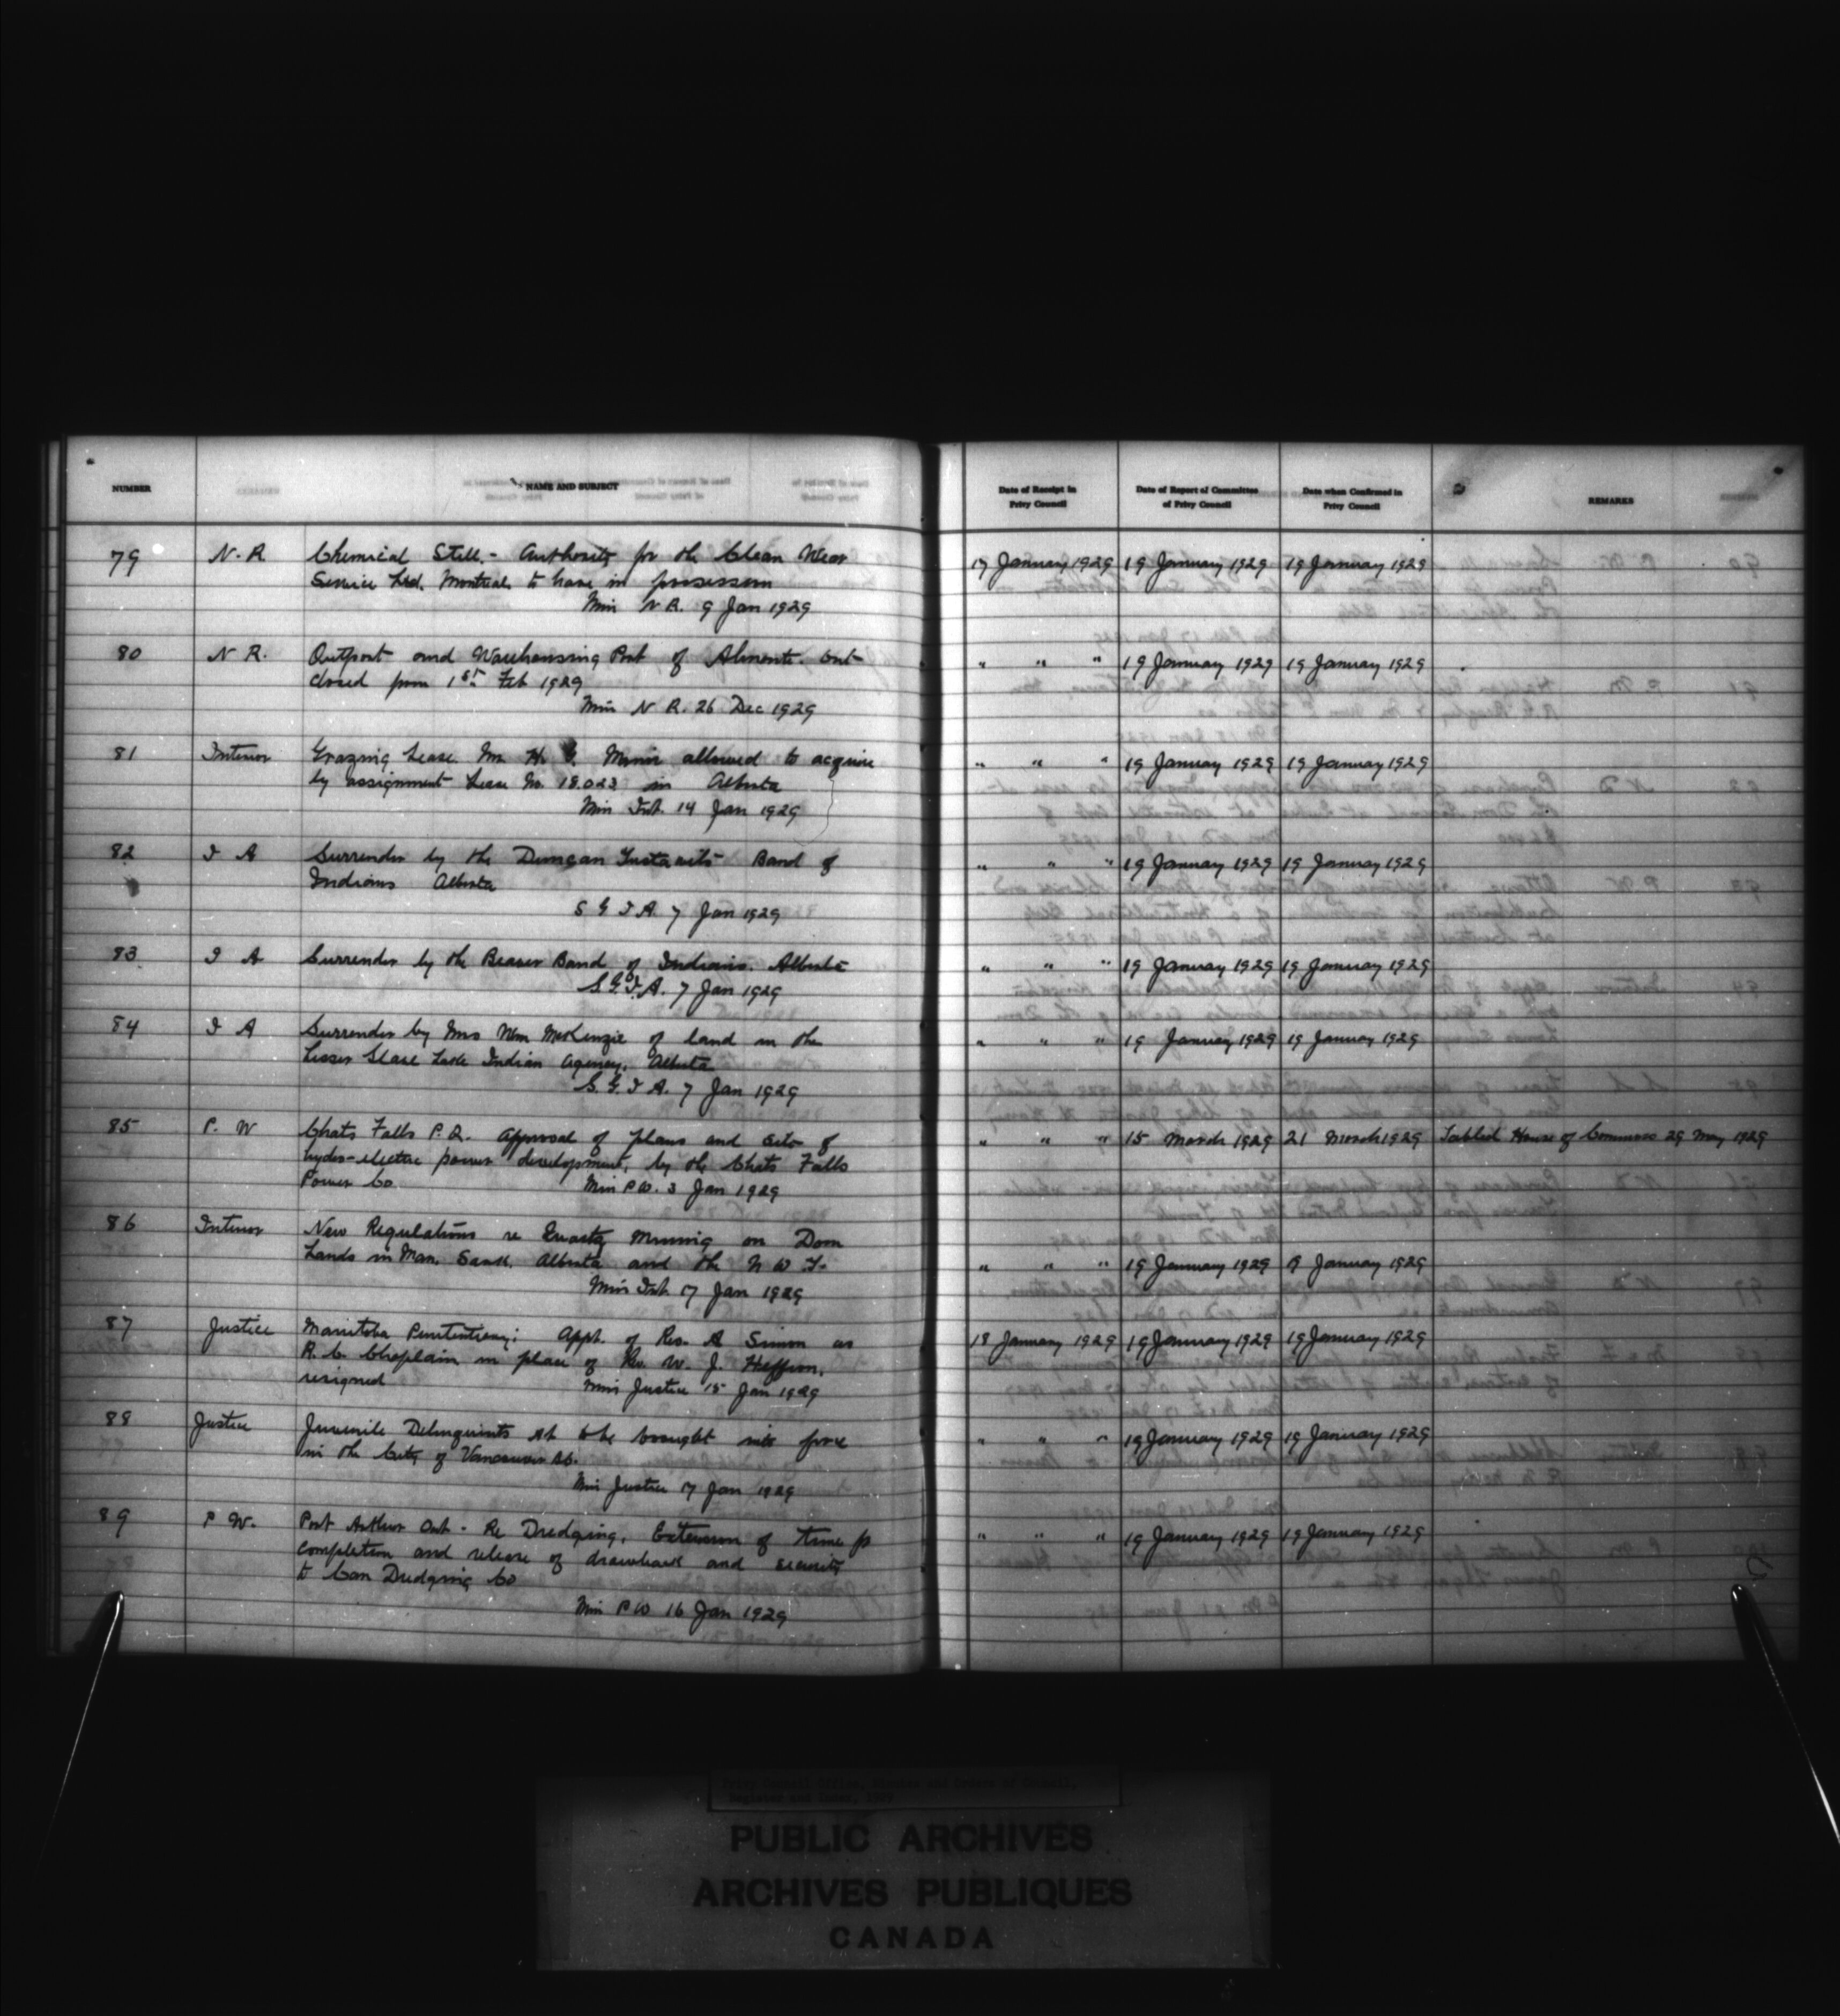 NUMBER NAME AND SUBJECT Date of Receipt in Privy Council Date of Report of Committee of Privy Council Date when Confirmed in Privy Council REMARKS
79 N. R Chemical Still. - Authority for the Clean Wear 17 January 1929 19 January 1929 19 January 1929
Service Ltd. Montreal to have in possession
Min N R. 9 Jan 1929
80 N R. Outport and Warehousing Port of Almonte. Ont " " " 19 January 1929 19 January 1929
closed from 1st Feb 1929
Min N R. 26 Dec 1929
81 Interior Grazing Lease. Mr. H. Minor allowed to acquire " " " 19 January 1929 19 January 1929
by assignment Lease No. 18.023 in Alberta
Min Int. 14 Jan 1929
82 I A Surrender by the Duncan Band of " " " 19 January 1929 19 January 1929
Indians Alberta
S G I A. 7 Jan 1929
83 I A Surrender by the Beaver Band of Indians. Alberta " " " 19 January 1929 19 January 1929
S. G. I. A. 7 Jan 1929
84 I A Surrender by Mrs Wm McKenzie of land in the " " " 19 January 1929 19 January 1929
Lesser Slave Lake Indian Agency, Alberta
S. G. I A. 7 Jan 1929
85 P. W Chats Falls P.Q. Approval of plans and site of " " " 15 March 1929 21 March 1929 Tabled House of Commons 29 May 1929
hydro-electric power development, by the Chats Falls
Power Co. Min P.W. 3 Jan 1929
86 Interior New Regulations re Quartz Mining on Dom
Lands in Man. Sask. Alberta and the N W T. " " " 19 January 1929 19 January 1929
Min Int 17 Jan 1929
87 Justice Manitoba Penitentiary: Appt. of Rev. A Simon as 18 January 1929 19 January 1929 19 January 1929
R. C. Chaplain in place of Rev. W. J. Heffron,
resigned Min Justice 15 Jan 1929
88 Justice Juvenile Delinquents Act to be brought into force " " " 19 January 1929 19 January 1929
in the City of Vancouver B.C.
Min Justice 17 Jan 1929
89 P W. Port Arthur Ont - Re Dredging. Extension of time for " " " 19 January 1929 19 January 1929
completion and release of drawback and security
to Can Dredging Co
Min P W 16 Jan 1929
Privy Council Office, Minutes and Orders in Council,
Register and Index, 1929
PUBLIC ARCHIVES
ARCHIVES PUBLIQUES
CANADA